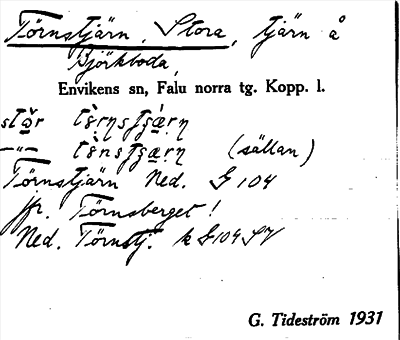 Törnstjärn, Stora, tjärn å
Björkboda,
Envikens sn, Falu norra tg. Kopp. l.
(sällan)
Törnstjärn Ned. G 104
Jfr. Törnsberget!
Ned. Törnstj. k G104 SV
G. Tideström 1931